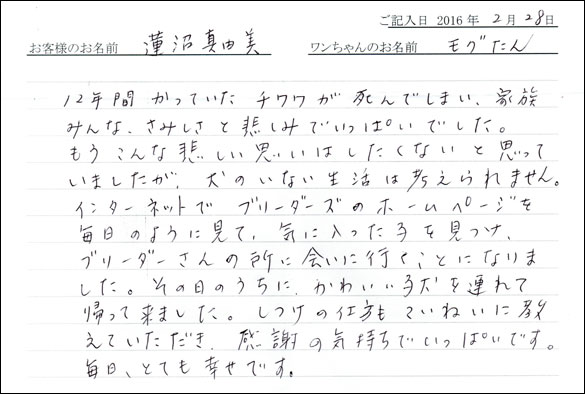 ご記入日 2016年 2月 28日
お客様のお名前 蓮沼真由美 ワンちゃんのお名前 モグたん
12年間かっていたチワワが死んでしまい、家族
みんな、さみしさと悲しみでいっぱいでした。
もうこんな悲しい思いはしたくないと思って
いましたが、犬のいない生活は考えられません。
インターネットでブリーダーズのホームページを
毎日のように見て、気に入った子を見つけ、
ブリーダーさんの所に会いに行くことになりま
した。その日のうちに、かわいい子犬を連れて
帰って来ました。しつけの仕方もていねいに教
えていただき、感謝の気持ちでいっぱいです。
毎日、とても幸せです。